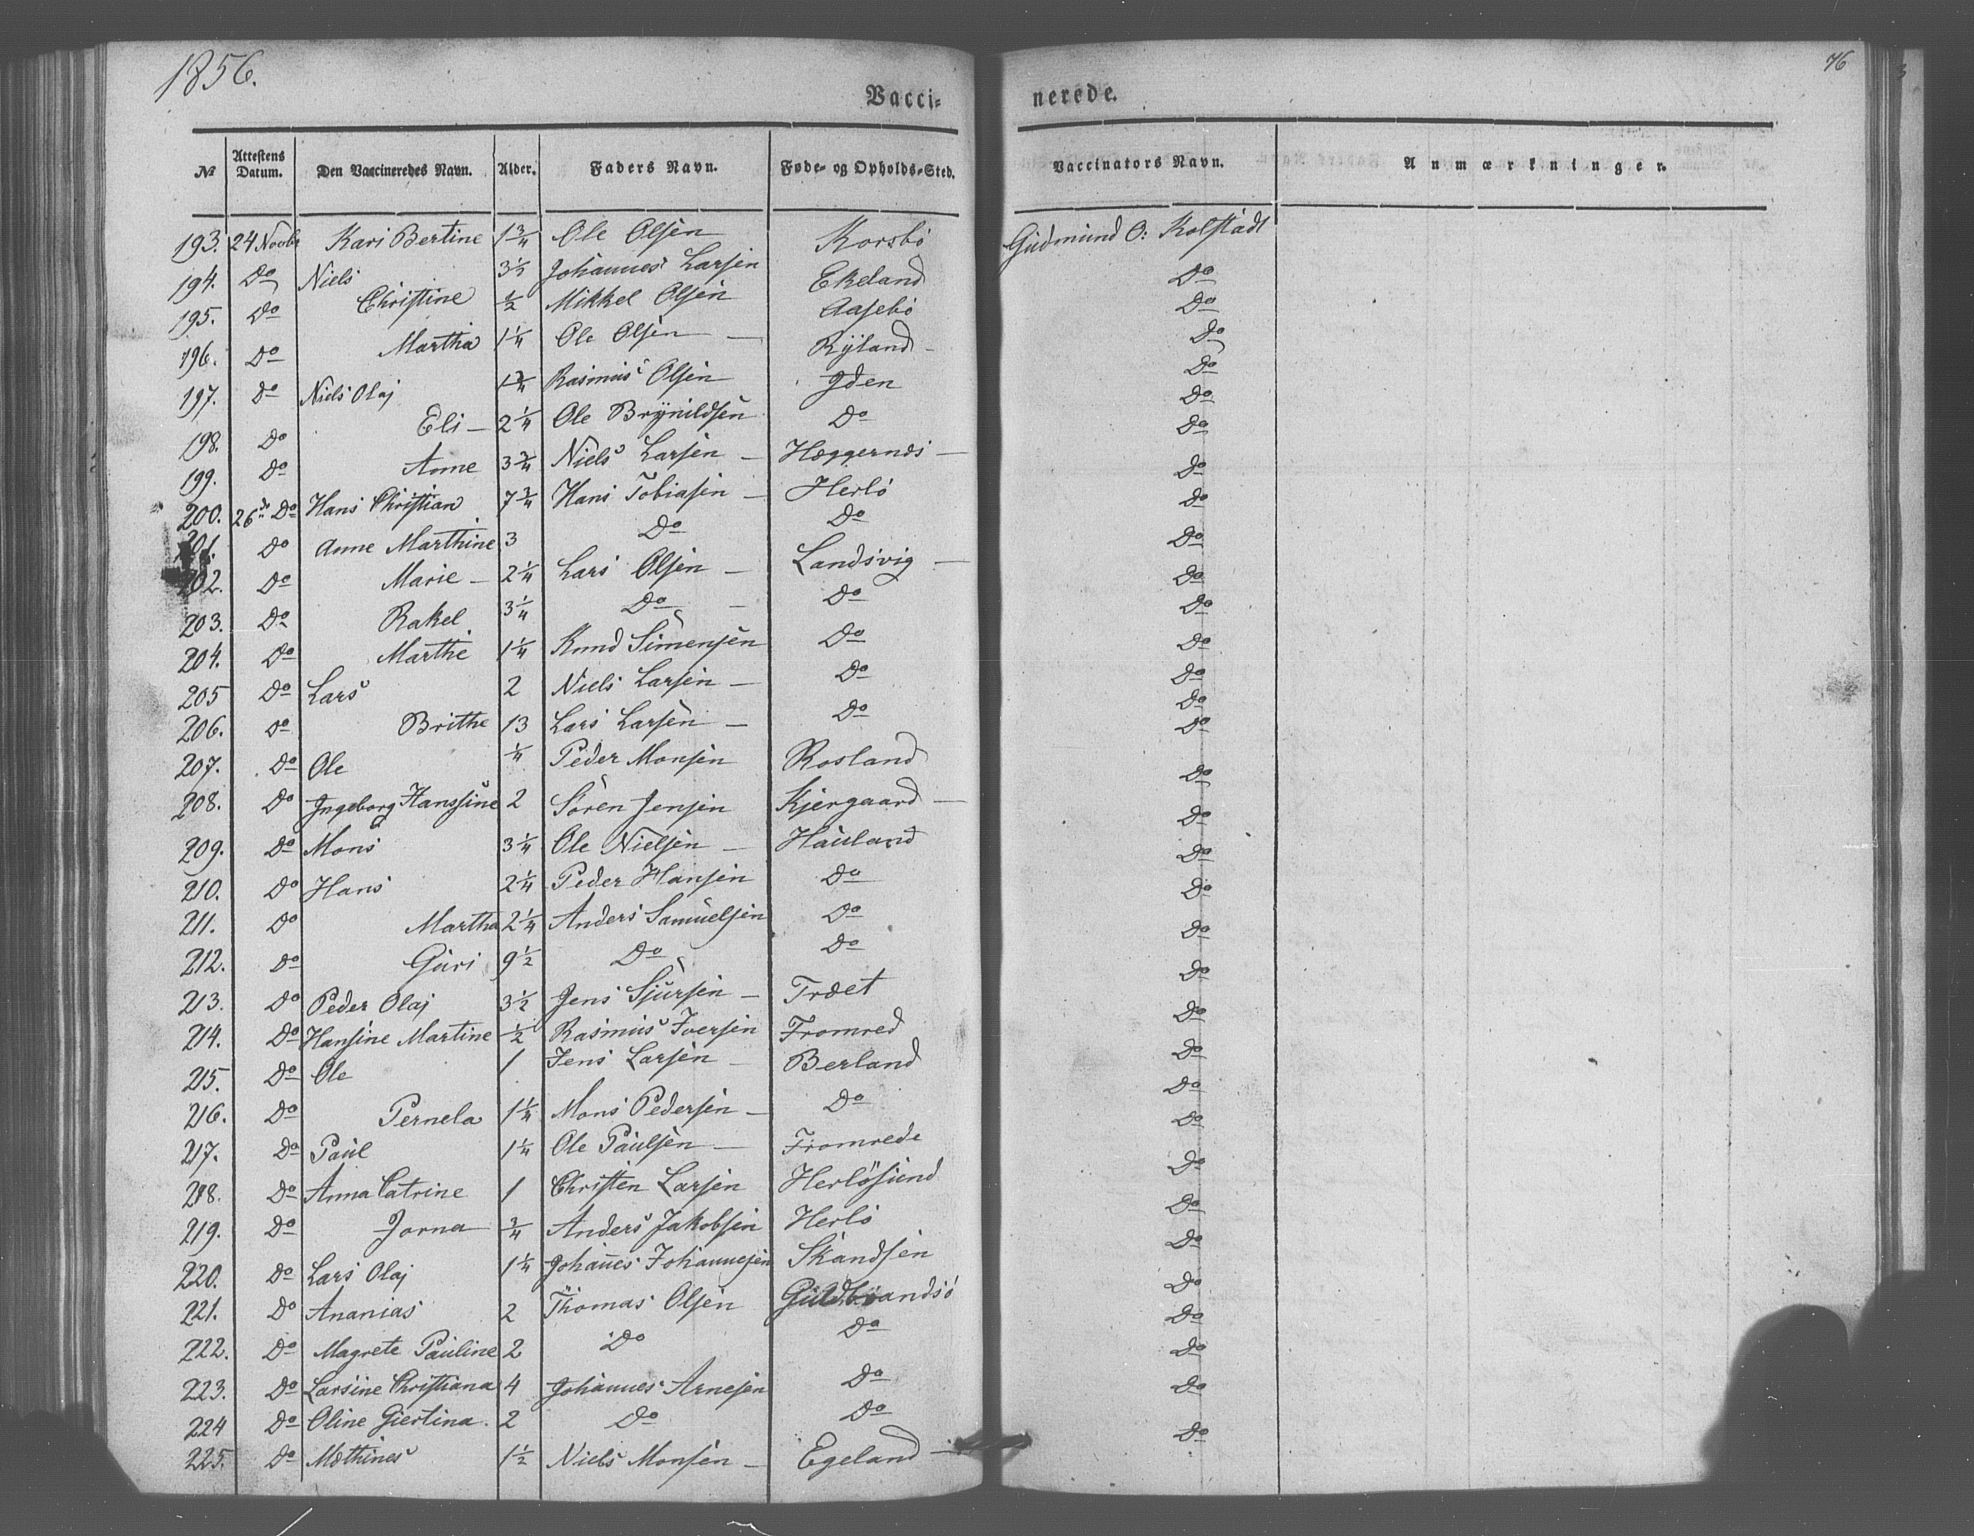 1856.
76
Vacci= nerede.
No Attestens Datum. Den Vaccineredes Navn. Alder. Faders Navn. Føde- og Opholds-Sted. Vaccinators Navn. Anmærkninger.
193. 24 Novbr Kari Bertine 1 3/4 Ole Olsen Korsbö Gudmund O: Kolstadt
194. Do Niels 3 1/2 Johannes Larsen Ekeland Do
195. Do Christine 1/2 Mikkel Olsen Aasebö Do
196. Do Martha 1 1/4 Ole Olsen — Ryland — Do
197. Do Niels Olaj 1 3/4 Rasmus Olsen Iden Do
198. Do Eli — 2 1/4 Ole Brynildsen Do Do
199. Do Anne 3 3/4 Niels Larsen — Hæggernæs — Do
200. 26de Do Hans Christian 7 3/4 Hans Tobiasen — Herlö Do
201. Do Anne Marthine 3 Do Do Do
202. Do Marie — 2 1/4 Lars Olsen — Landsvig — Do
203. Do Rakel 3 1/4 Do — Do Do
204. Do Marthe 1 1/4 Knud Simensen Do Do
205 Do Lars 2 Niels Larsen — Do Do
206. Do Brithe 13 Lars Larsen — Do Do
207. Do Ole 1/4 Peder Monsen Rosland Do
208. Do Ingeborg Hanssine 2 Sören Jensen Kjergaard — Do
209. Do Mons 3 1/4 Ole Nielsen — Hauland Do
210. Do Hans 2 1/4 Peder Hansen Do Do
211. Do Martha 2 1/4 Anders Samuelsen Do Do
212. Do Guri 9 1/2 Do Do Do
213. Do Peder Olaj 3 1/2 Jens Sjursen — Træet Do
214. Do Hansine Martine 1/2 Rasmus Iversen Fromred Do
215. Do Ole 1 Jens Larsen — Berland Do
216. Do Pernela 1 1/4 Mons Pedersen — Do Do
217. Do Paul 1 1/4 Ole Paulsen — Fromrede Do
218. Do Anna Catrine 1 Christen Larsen Herlösund Do
219. Do Jorna 3/4 Anders Jakobsen Herlö Do
220. Do Lars Olaj 1 1/4 Johanes Johannesen Skandsen Do
221. Do Ananias 2 Thomas Olsen Guldbrandsö Do
222. Do Magrete Pauline 2 Do Do Do
223. Do Larsine Christiana 4 Johannes Arnesen Do Do
224 Do Oline Giertina. 2 Do Do Do
225. Do Mathines 1 1/2 Niels Monsen — Egeland — Do